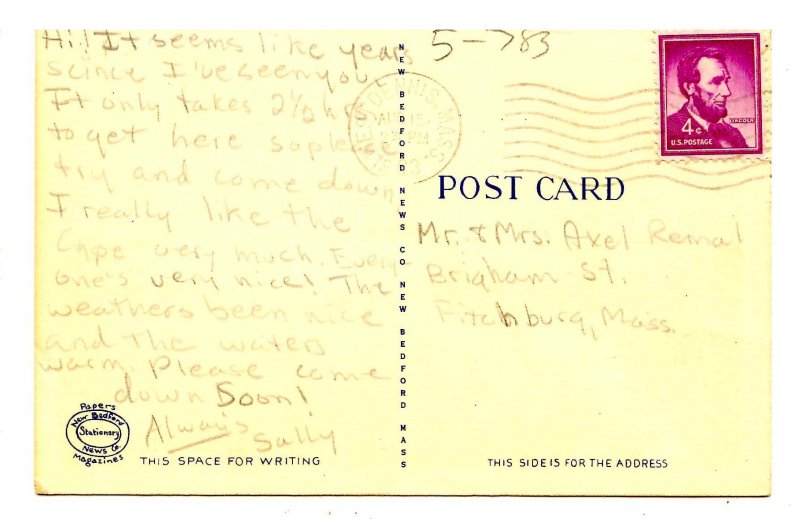 Hi! It seems like years
scince I've seen you
It only takes 2 1/2 hrs
to get here so please
try and come down
I really like the
Cape very much. Every-
one's very nice! The
weathers been nice
and The waters
warm. Please come
down Soon!
Always
Sally
Papers
New Bedford
Stationery
News Co.
Magazines
THIS SPACE FOR WRITING
NEW BEDFORD NEWS CO NEW BEDFORD MASS
5-783
WEST DENNIS, MASS.
PM
LINCOLN
4¢
U.S. POSTAGE
POST CARD
Mr. & Mrs. Axel Remal
Brigham St.
Fitchburg, Mass.
THIS SIDE IS FOR THE ADDRESS